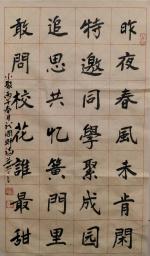 昨夜春風未肯閑
特邀同學聚成园
追思共忆簧門里
敢問校花誰最甜